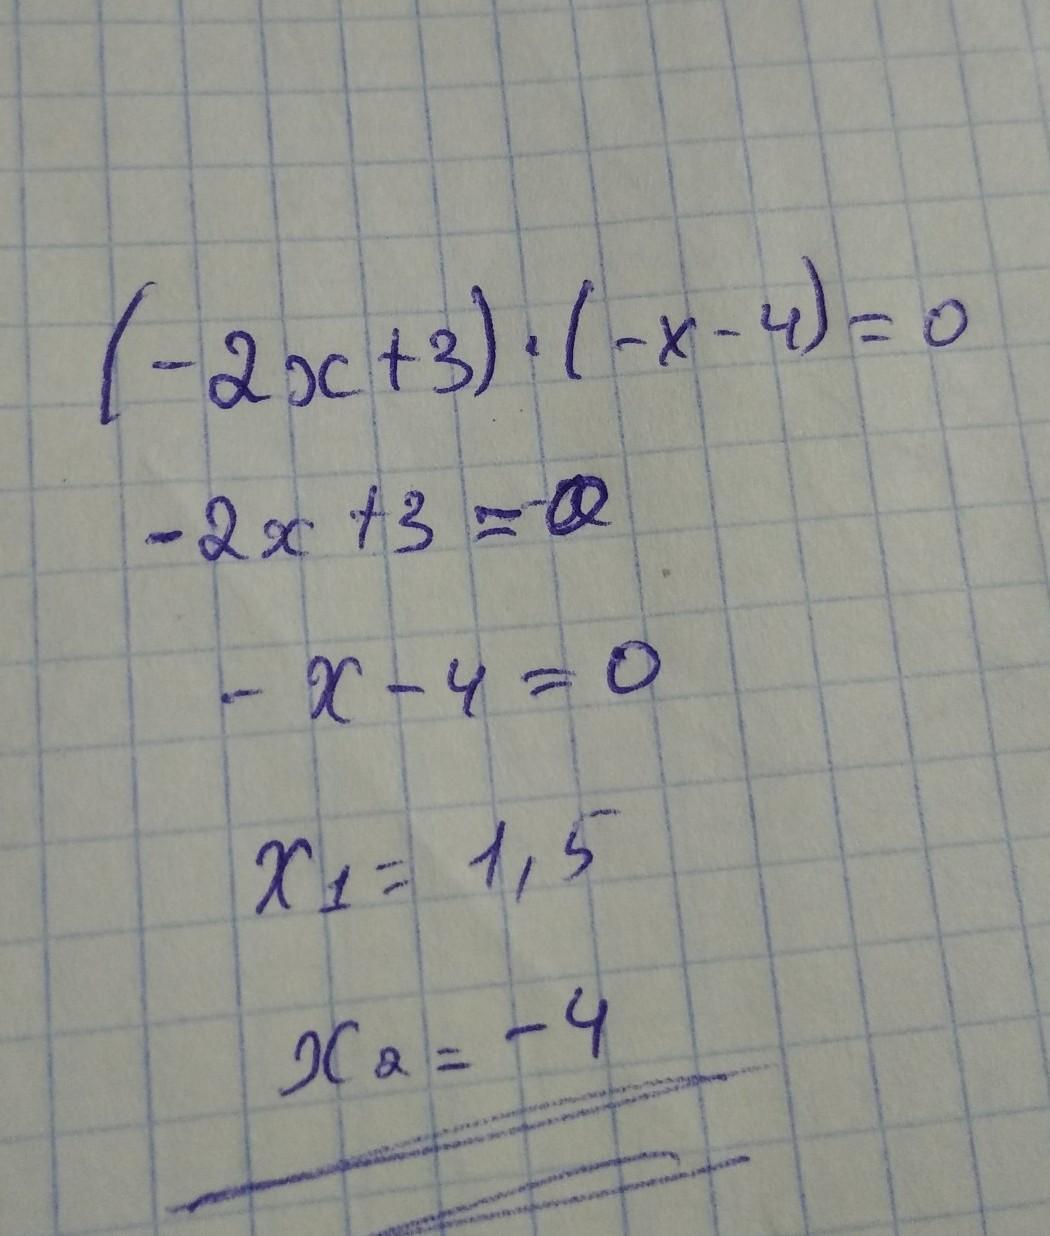 (-2x+3)·(-x-4)=0
-2x+3=0
-x-4=0
x₁=1,5
x₂=-4